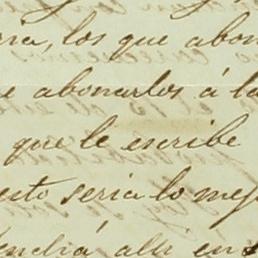 rria, los que abon
e abonarlos á la
que le escribe
esto seria lo mej
endrá alli en